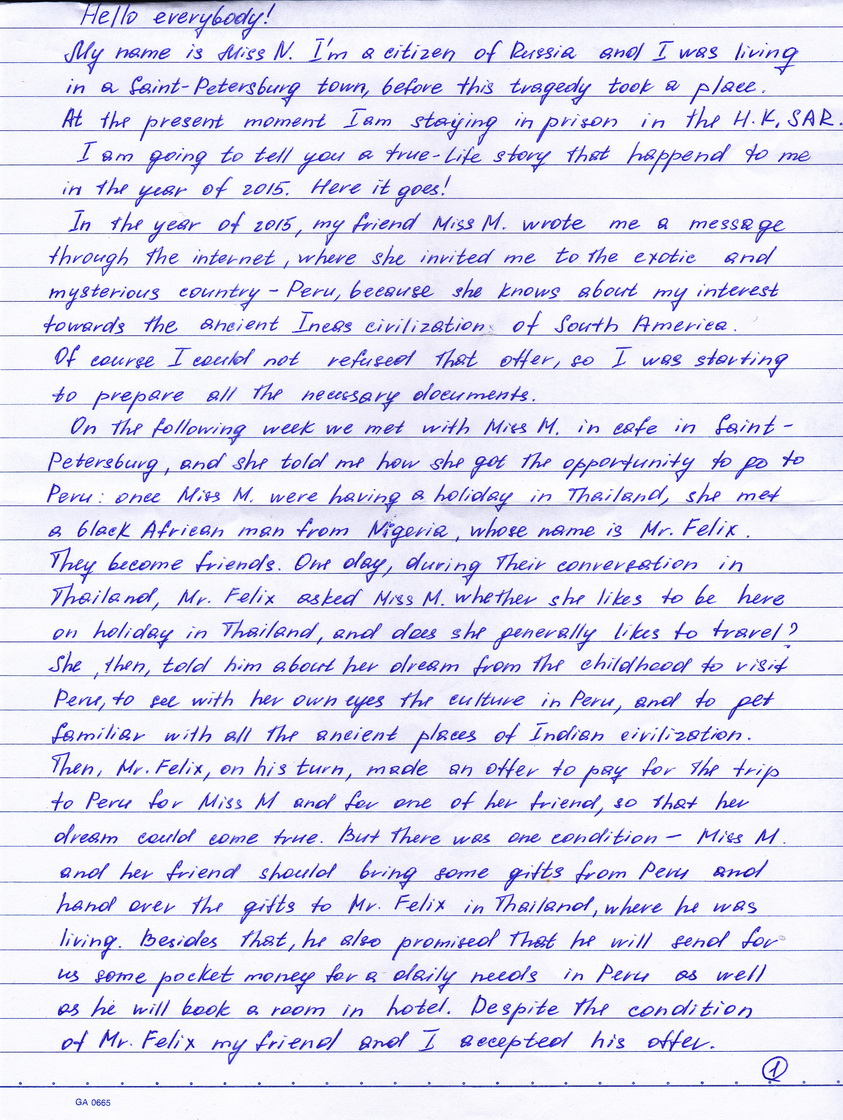 Hello everybody!
My name is Miss N. I'm a citizen of Russia and I was living
in a Saint-Petersburg town, before this tragedy took a place.
At the present moment I am staying in prison in the H.K, SAR.
I am going to tell you a true-life story that happend to me
in the year of 2015. Here it goes!
In the year of 2015, my friend Miss M. wrote me a message
through the internet, where she invited me to the exotic and
mysterious country - Peru, because she knows about my interest
towards the ancient Incas civilization of South America.
Of course I could not refused that offer, so I was starting
to prepare all the necessary documents.
On the following week we met with Miss M. in cafe in Saint-
Petersburg, and she told me how she got the opportunity to go to
Peru: once Miss M. were having a holiday in Thailand, she met
a black African man from Nigeria, whose name is Mr. Felix.
They become friends. One day, during their conversation in
Thailand, Mr. Felix asked Miss M. whether she likes to be here
on holiday in Thailand, and does she generally likes to travel?
She, then, told him about her dream from the childhood to visit
Peru, to see with her own eyes the culture in Peru, and to get
familiar with all the ancient places of Indian civilization.
Then, Mr. Felix, on his turn, made an offer to pay for the trip
to Peru for Miss M and for one of her friend, so that her
dream could come true. But there was one condition - Miss M.
and her friend should bring some gifts from Peru and
hand over the gifts to Mr. Felix in Thailand, where he was
living. Besides that, he also promised that he will send for
us some pocket money for a daily needs in Peru as well
as he will book a room in hotel. Despite the condition
of Mr. Felix my friend and I accepted his offer.
1
GA 0665